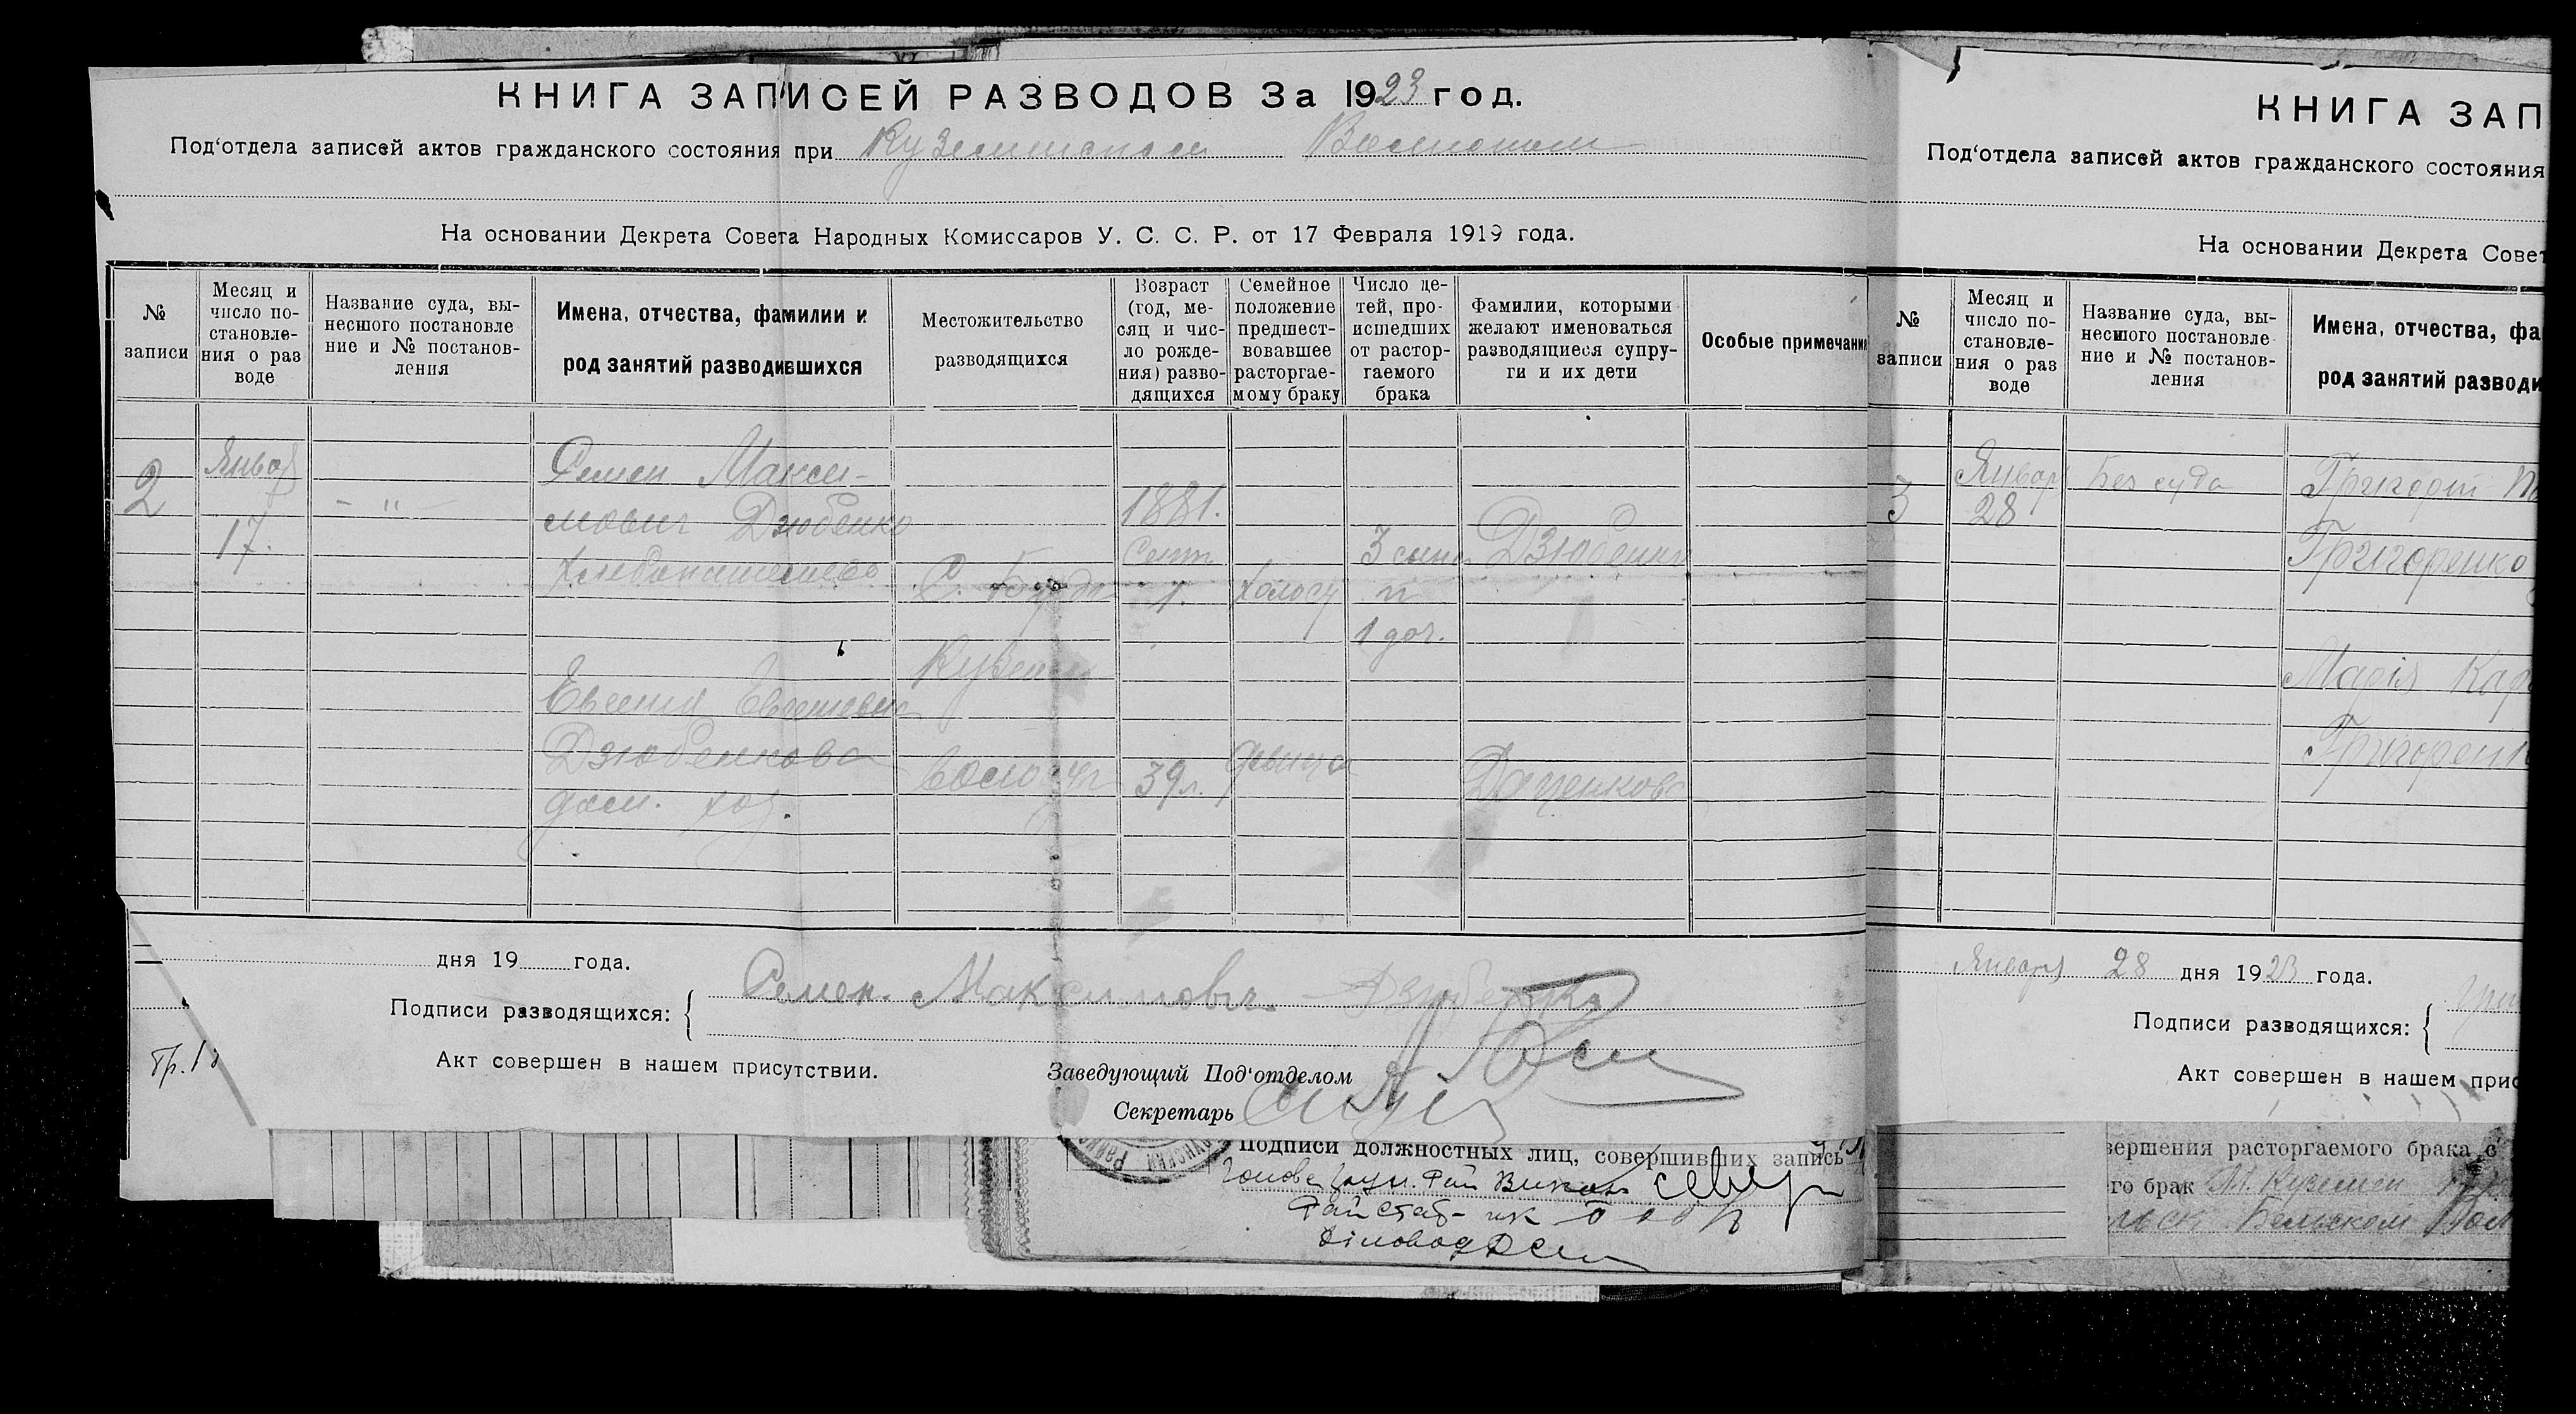 КНИГА ЗАПИСЕЙ РАЗВОДОВ За 1923 год.
Под‘отдела записей актов гражданского состояния при
На основании Декрета Совета Народных Комиссаров У. С. С. Р. от 17 Февраля 1919 года.
№ записи
Месяц и число по-
становле-
ния о раз
воде
Название суда, вы-
несшого постановле
ние и № постанов-
ления
Имена, отчества, фамилии и
род занятий разводившихся
Местожительство
разводящихся
Возраст
(год, ме-
сяц и чис-
ло рожде-
ния) разво-
дящихся
Семейное
положение
предшест-
вовавшее
расторгае-
мому браку
Число де-
тей, про-
исшедших
от растор-
гаемого
брака
Фамилии, которыми
желают именоваться
разводящиеся супру-
ги и их дети
Особые примечания
2
Январ
17.
- " -
Семен Макси-
мович Дзюбенко
1881.
Сент.
1.
Холост
3 сына
и
1 доч.
Евгения
Дзюбенкова
дом. хоз.
39 л.
девица
Даценкова
дня 19 года.
Подписи разводящихся: {
Семен Максимович Дзюбенко
Акт совершен в нашем присутствии.
Заведующий Под‘отделом
Секретарь
Гр.
Подписи должностных лиц, совершивших запись
Діловод
КНИГА ЗАП
Под‘отдела записей актов гражданского состояния
На основании Декрета Совет
№ записи
Месяц и
число по-
становле-
ния о раз
воде
Название суда, вы-
несшого постановле
ние и № постанов-
ления
Имена, отчества, фа
род занятий разводи
3
Январ
28
Без суда
Григорий
Григоренко
Марія Кар
Григоренк
Января 28 дня 1923 года.
Подписи разводящихся: {
Акт совершен в нашем прис
вершения расторгаемого брака с
го брак